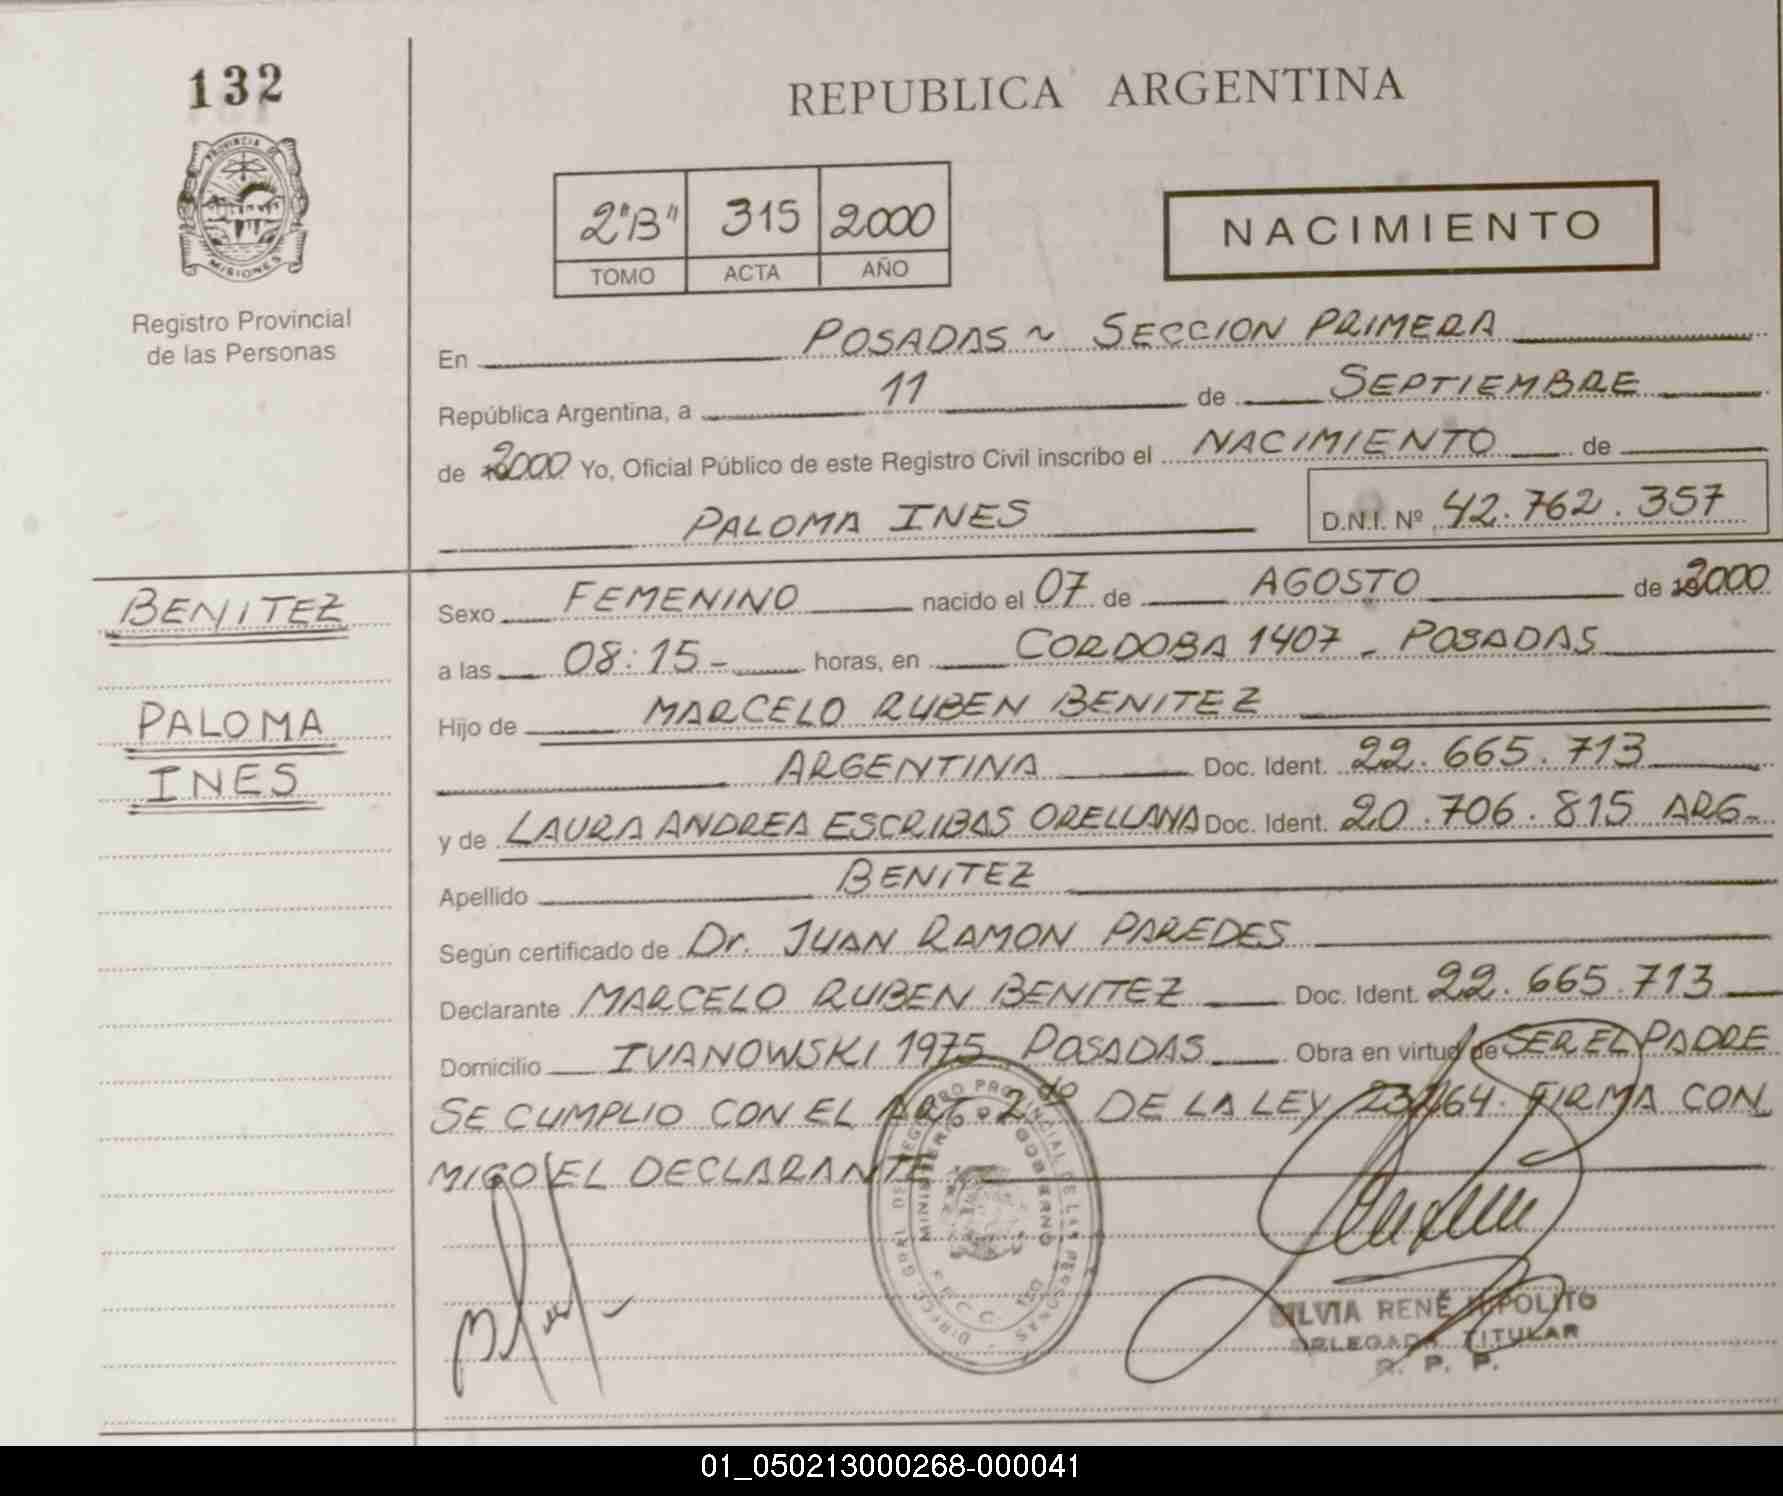 132
PROVINCIA DE
MISIONES
Registro Provincial
de las Personas
REPUBLICA ARGENTINA
2"B" 315 2000
TOMO ACTA AÑO
NACIMIENTO
En POSADAS ~ SECCION PRIMERA
República Argentina, a 11 de SEPTIEMBRE
de 2000 Yo, Oficial Público de este Registro Civil inscribo el NACIMIENTO de
PALOMA INES D.N.I. Nº 42.762.357
BENITEZ
PALOMA
INES
Sexo FEMENINO nacido el 07 de AGOSTO de 2000
a las 08:15- horas, en CORDOBA 1407 - POSADAS
Hijo de MARCELO RUBEN BENITEZ
ARGENTINA Doc. Ident. 22.665.713
y de LAURA ANDREA ESCRIBAS ORELLANA Doc. Ident. 20.706.815 ARG-
Apellido BENITEZ
Según certificado de Dr. JUAN RAMON PAREDES
Declarante MARCELO RUBEN BENITEZ Doc. Ident. 22.665.713
Domicilio IVANOWSKI 1975 POSADAS Obra en virtud de SER EL PADRE
SE CUMPLIO CON EL ART 2do DE LA LEY 23264. FIRMA CON
MIGO EL DECLARANTE
MINISTERIO DE GOBIERNO
SILVIA RENÉ HIPOLITO
DELEGADA TITULAR
R. P. P.
01_050213000268-000041